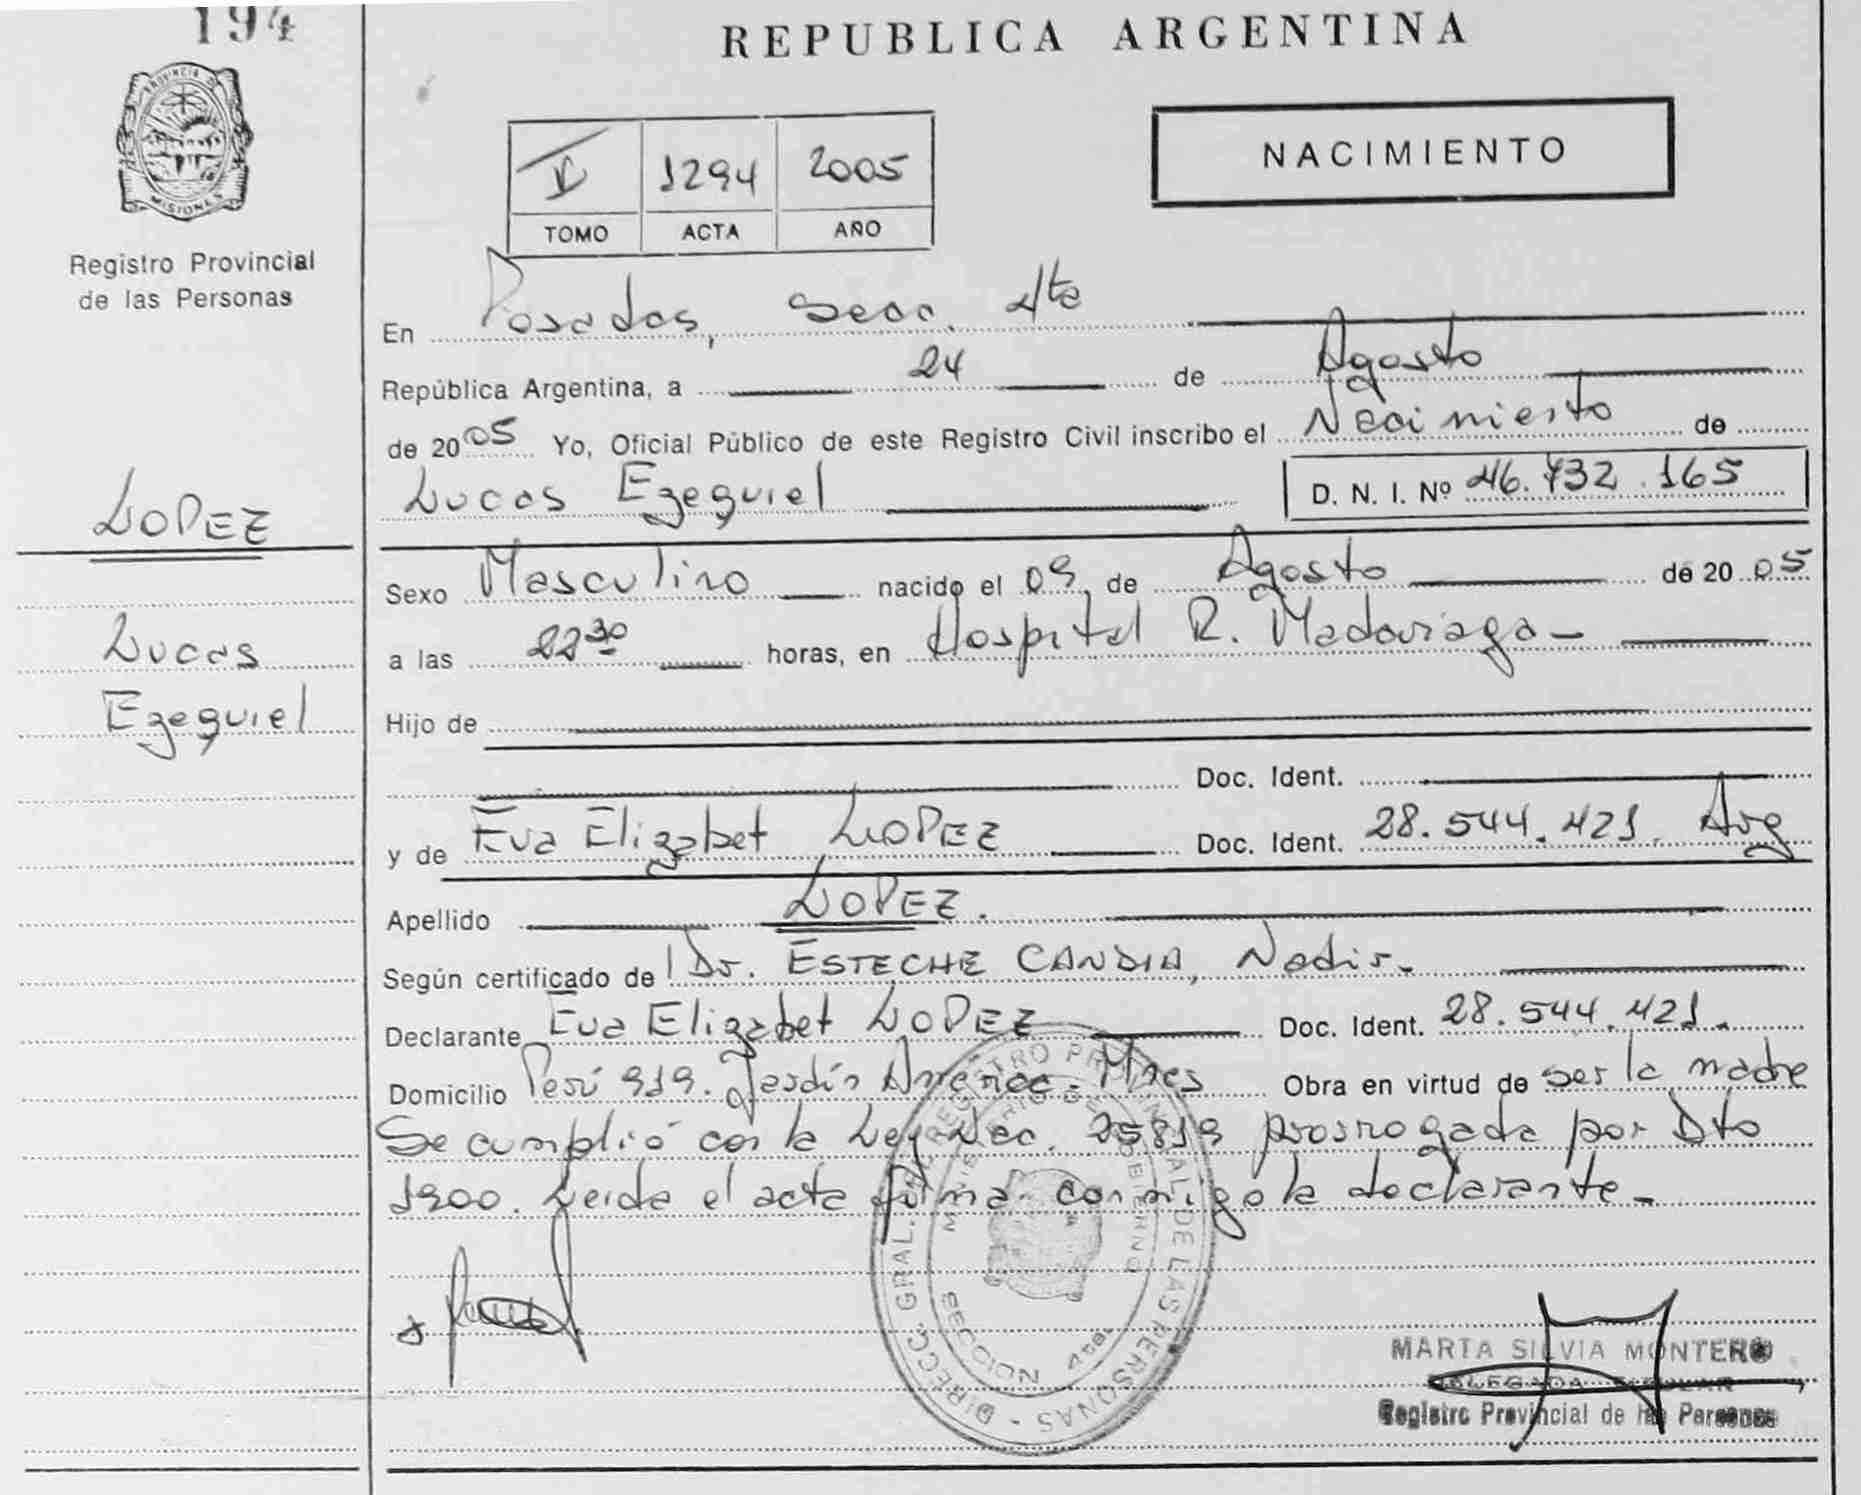 194
REPUBLICA ARGENTINA
PROVINCIA DE
MISIONES
Registro Provincial
de las Personas
1294 2005
TOMO ACTA AÑO
NACIMIENTO
En Posadas, Secc. 4ta
República Argentina, a 24 de Agosto
de 2005 Yo, Oficial Público de este Registro Civil inscribo el Nacimiento de
Lucas Ezequiel D. N. I. Nº 46.732.165
LOPEZ
Lucas
Ezequiel
Sexo Masculino nacido el 09 de Agosto de 2005
a las 22 30 horas, en Hospital R. Madariaga -
Hijo de
Doc. Ident.
y de Eva Elizabet LOPEZ Doc. Ident. 28.544.421. Arg
Apellido LOPEZ.
Según certificado de Dr. ESTECHE CANDIA, Nadir.
Declarante Eva Elizabet LOPEZ Doc. Ident. 28.544.421.
Domicilio Perú 919. Jardín América - Mnes Obra en virtud de ser la madre
Se cumplió con la Ley Nac. 25819 prorrogada por Dto
1900. Leida el acta firma conmigo la declarante.
DIRECC. GRAL. DEL REGISTRO PROVINCIAL DE LAS PERSONAS -
MINISTERIO DE GOBIERNO
SECCION 4ta
MARTA SILVIA MONTERO
DELEGADA TITULAR
Registro Provincial de las Personas